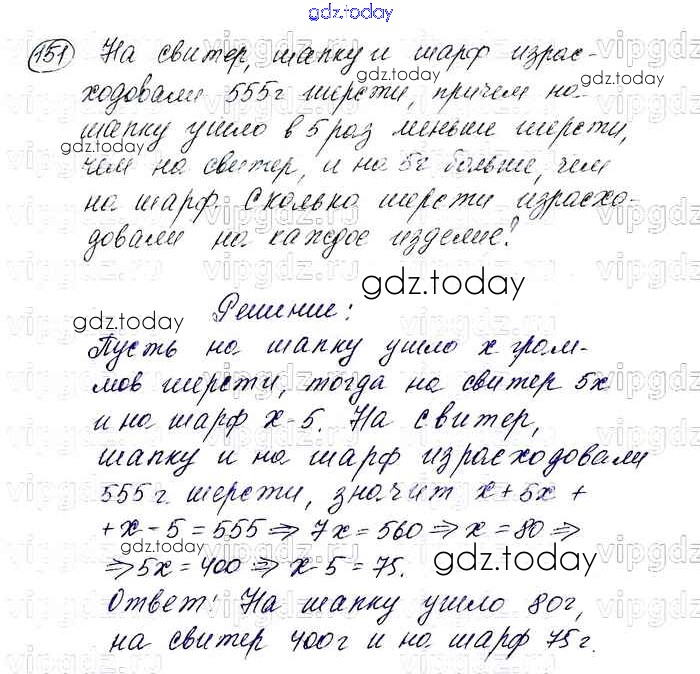 gdz.today
151 На свитер, шапку и шарф израс-
ходовали 555г шерсти, причем на
шапку ушло в 5 раз меньше шерсти,
чем на свитер, и на 5г больше, чем
на шарф. Сколько шерсти израсхо-
довали на каждое изделие?
gdz.today
Решение:
Пусть на шапку ушло x грам-
мов шерсти, тогда на свитер 5x
и на шарф x-5. На свитер,
шапку и на шарф израсходовали
555г шерсти, значит x+5x+
+x-5=555 ⇒ 7x=560 ⇒ x=80 ⇒
⇒ 5x=400 ⇒ x-5=75.
Ответ: На шапку ушло 80г,
на свитер 400г и на шарф 75г.